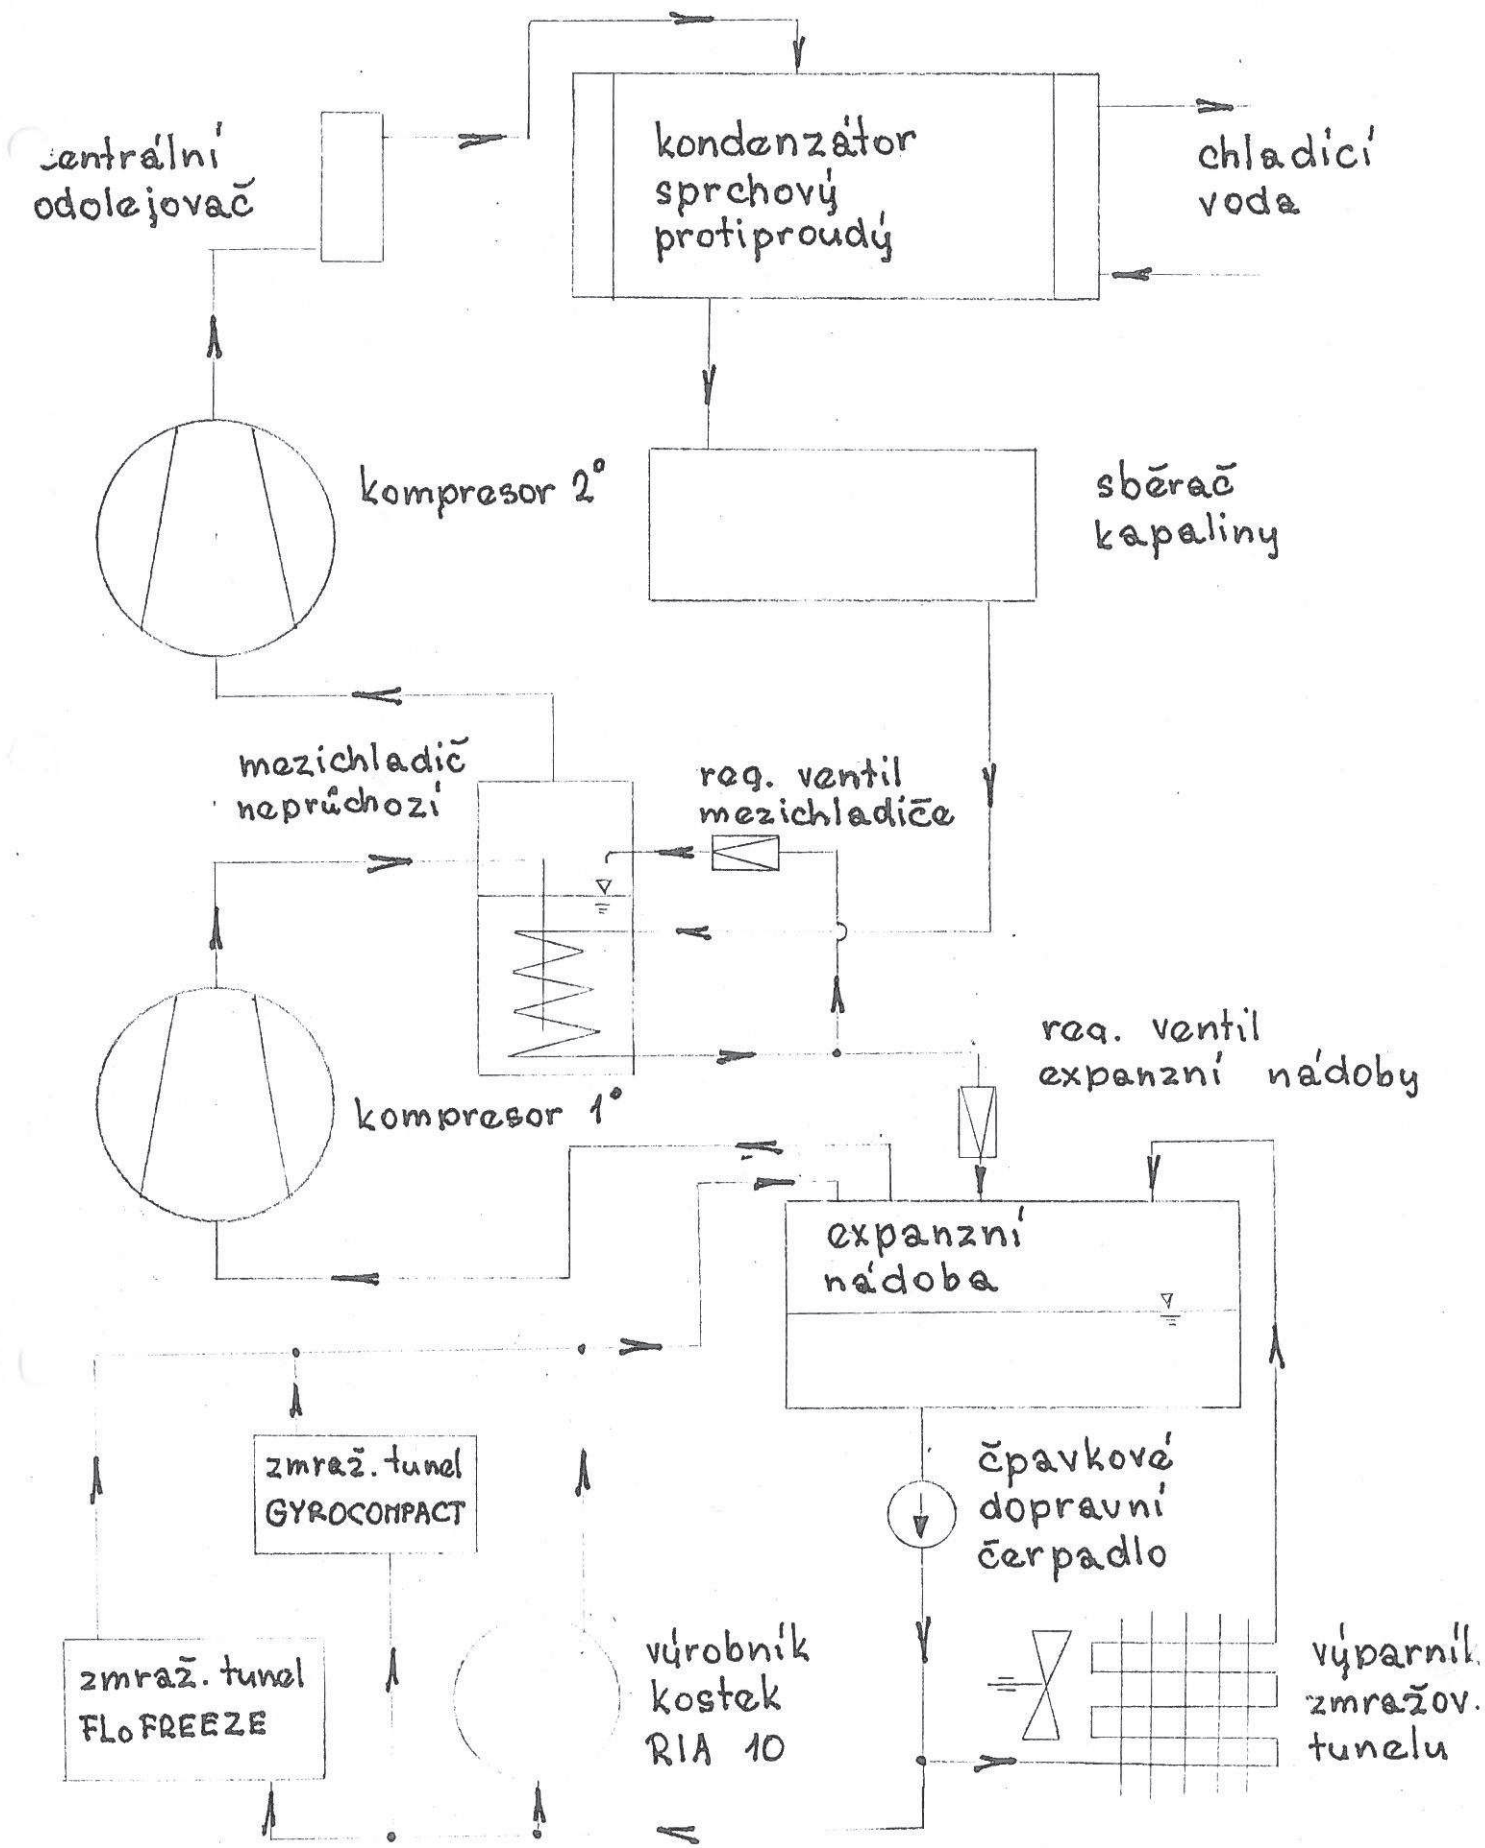 centrální
odolejovač
kondenzátor
sprchový
protiproudý
chladící
voda
kompresor 2°
sběrač
kapaliny
mezichladič
neprůchozí
reg. ventil
mezichladiče
kompresor 1°
reg. ventil
expanzní nádoby
expanzní
nádoba
zmraž. tunel
GYROCOMPACT
čpavkové
dopravní
čerpadlo
zmraž. tunel
FLoFREEZE
výrobník
kostek
RIA 10
výparník
zmražov.
tunelu